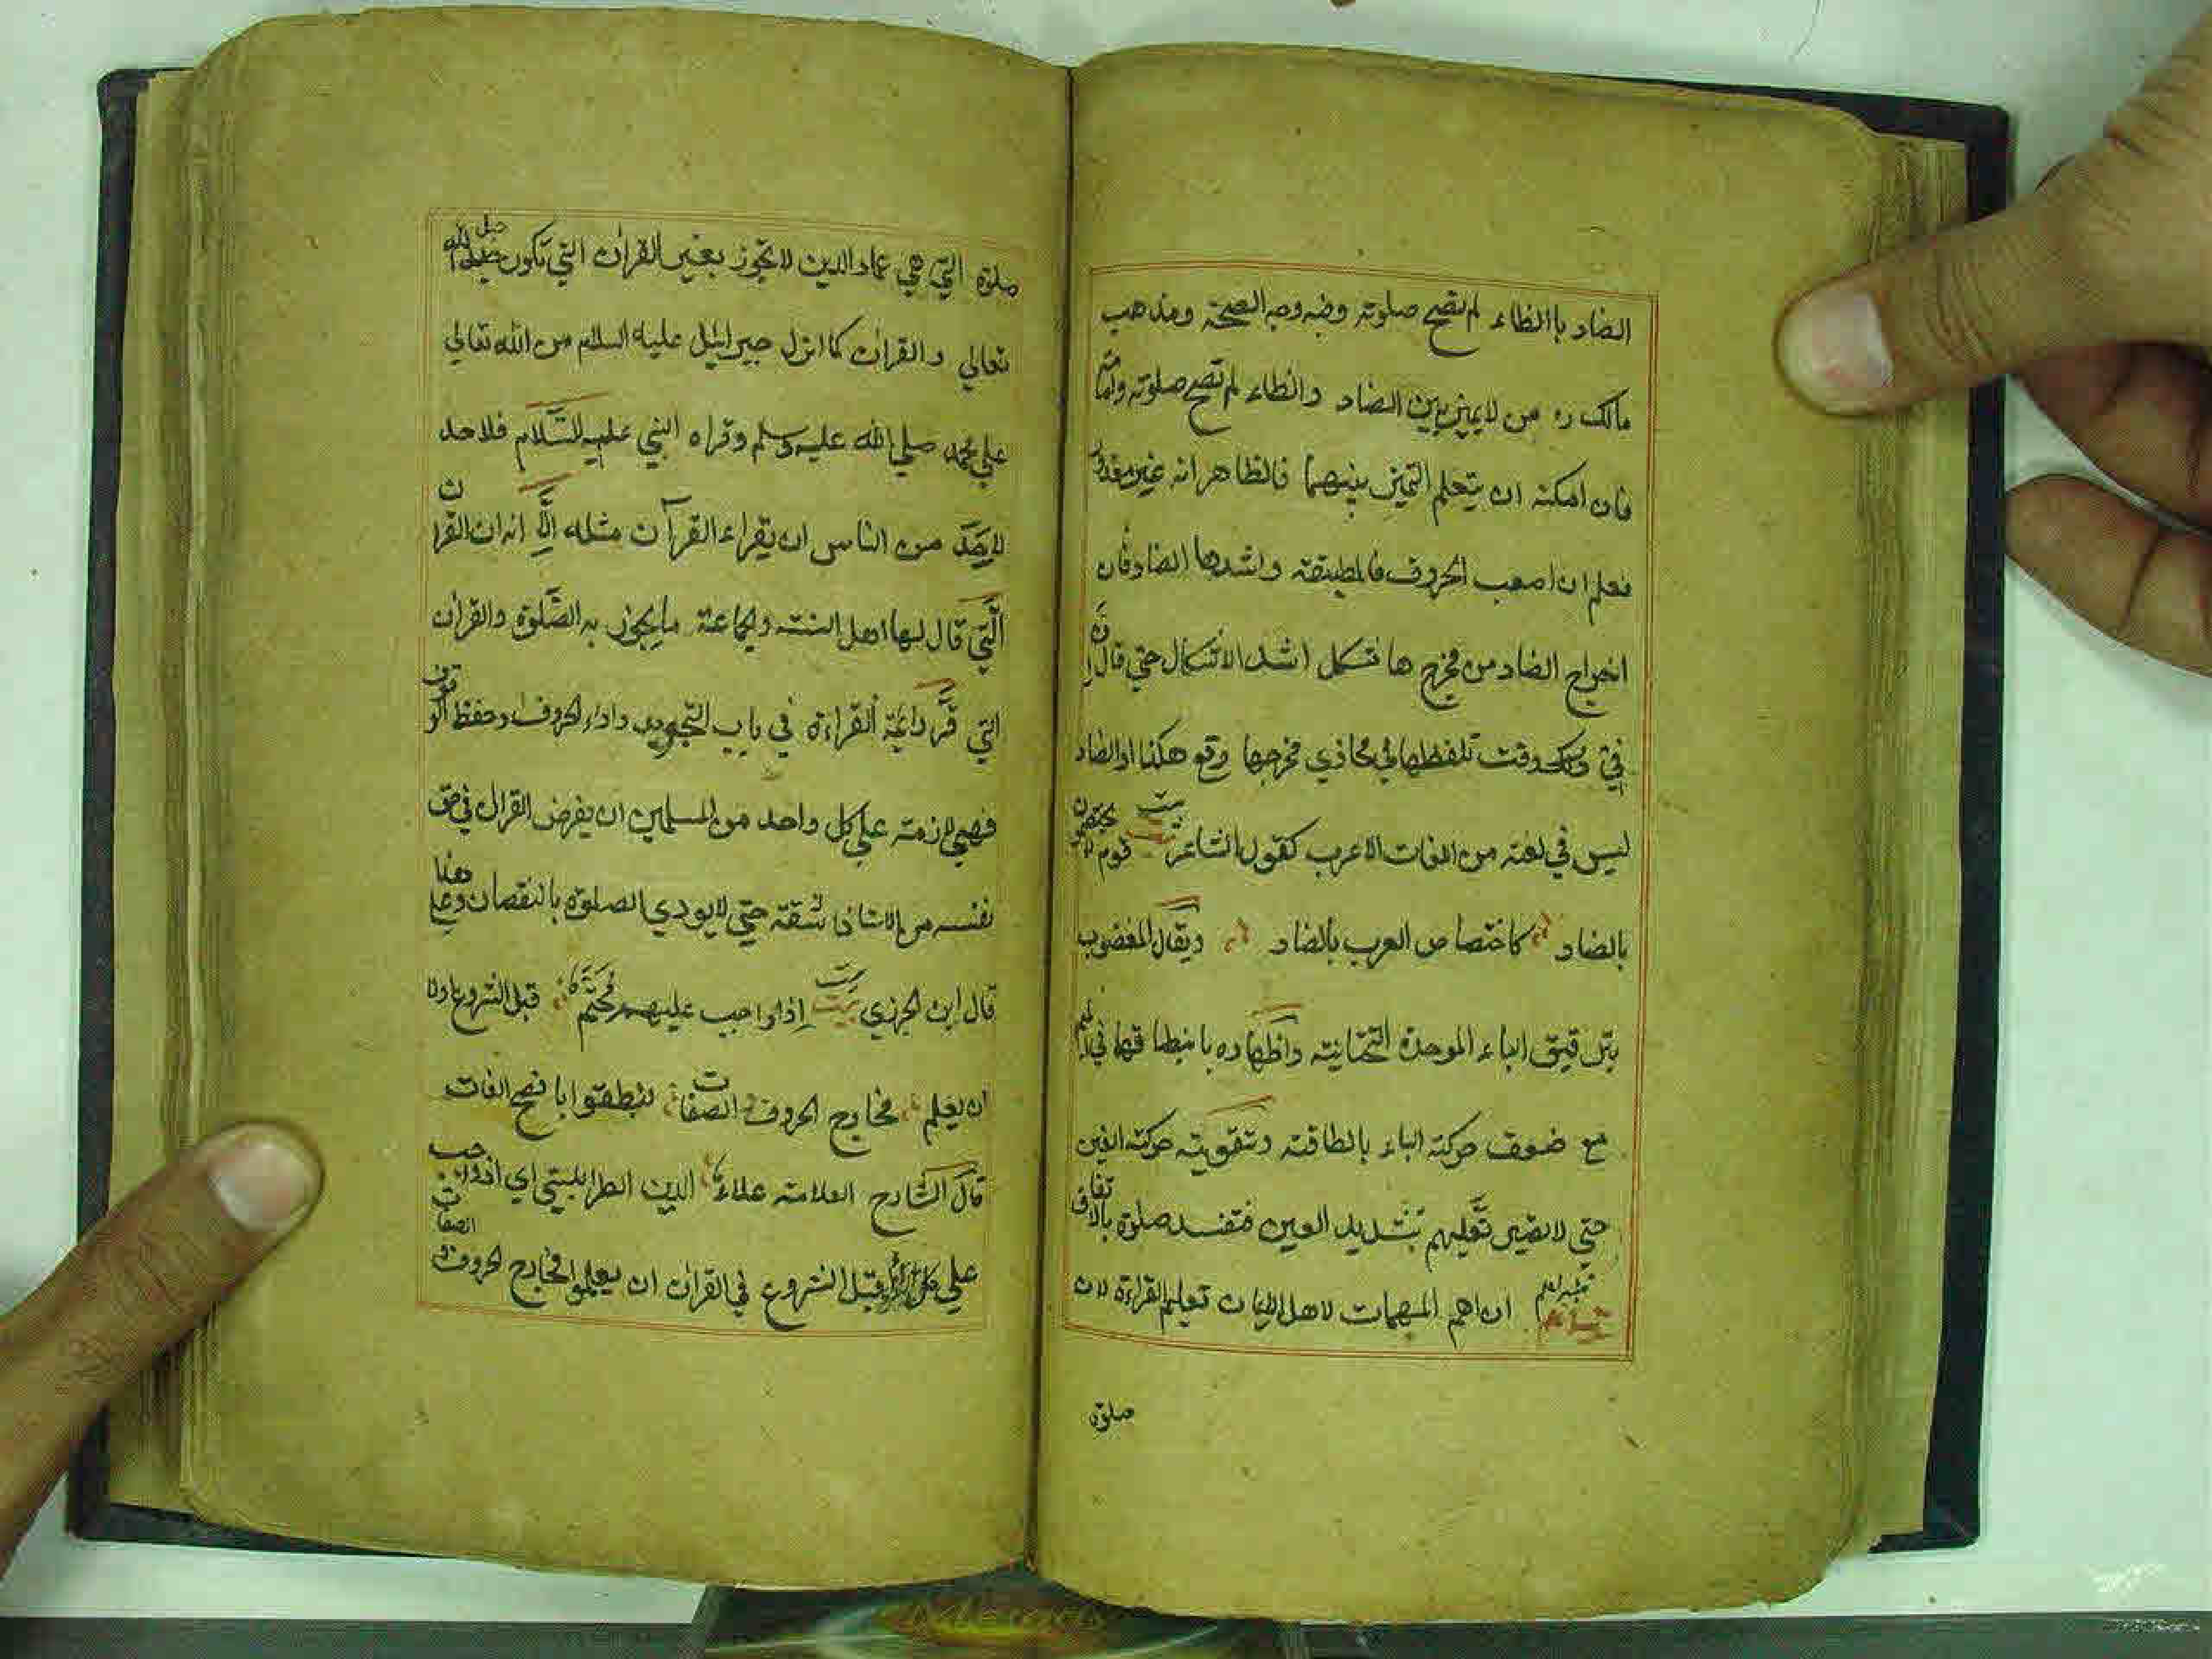 الضاد باالظاء لم تصح صلوته وضه وجه الصحة ومذهب
مالك ره من لا يميز بين الضاد والظاء لم تصح صلوته وامامته
فان امكنه ان يتعلم التميز بينهما فالظاهر انه غير معذور
فعلم ان اصعب الحروف فالمطبقة واشدها الضاد فان
اخراج الضاد من مخرج ها تسكل اشد الاشكال حتى قال
في وقت تلفظها في محاذي مخرجها وقع هكذا اوالضاد
ليس في لغة من اللغات الا عرب كقول الشاعر بيت قوم يختصون
بالضاد كاختصاص العرب بالضاد ويقال المغضوب
بترقيق الباء الموحدة التحتانية واظهاره بانطباقها في
مع ضعف حركة الباء بالطاقة وتقوية حركة الغين
حتى لا يصير تعليهم بتشديد العين فتفسد صلوة بالاتفاق
ان اهم المهمات لاهل الايمان تعليم القراءة لان
صلوة
صلوة التي هي عماد الدين لا تجوز بغير القران التي تكون حبل الله
تعالي والقران كما انزل جبرائيل عليه السلام من الله تعالي
علي محمد صلي الله عليه وسلم وقراه النبي عليه السلام فلاحد
لا يصد من الناس ان يقراء القرآن مثله الا انه ان القران
التي قال لها اهل السنة والجماعة ما يجوز به الصلوة والقران
التي قرر ائمة القراءة في باب التجويد واداء الحروف وحفظ الوقوف
فهي لازمة علي كل واحد من المسلمين ان يفرض القران في حق
نفسه من الاستاذ شقة حتي لا يودي الصلوة بالنقصان وعلي هذا
قال ابن الجزري بيت اذا واجب عليهم محتم قبل الشروع اولا
ان يعلم مخارج الحروف والصفات لينطقوا با فصح الغات
قال الشارح العلامة علاء الدين الطرابلستي اي اذ واجب
علي كل قبل الشروع في القران ان يعلموا مخارج الحروف والصفات